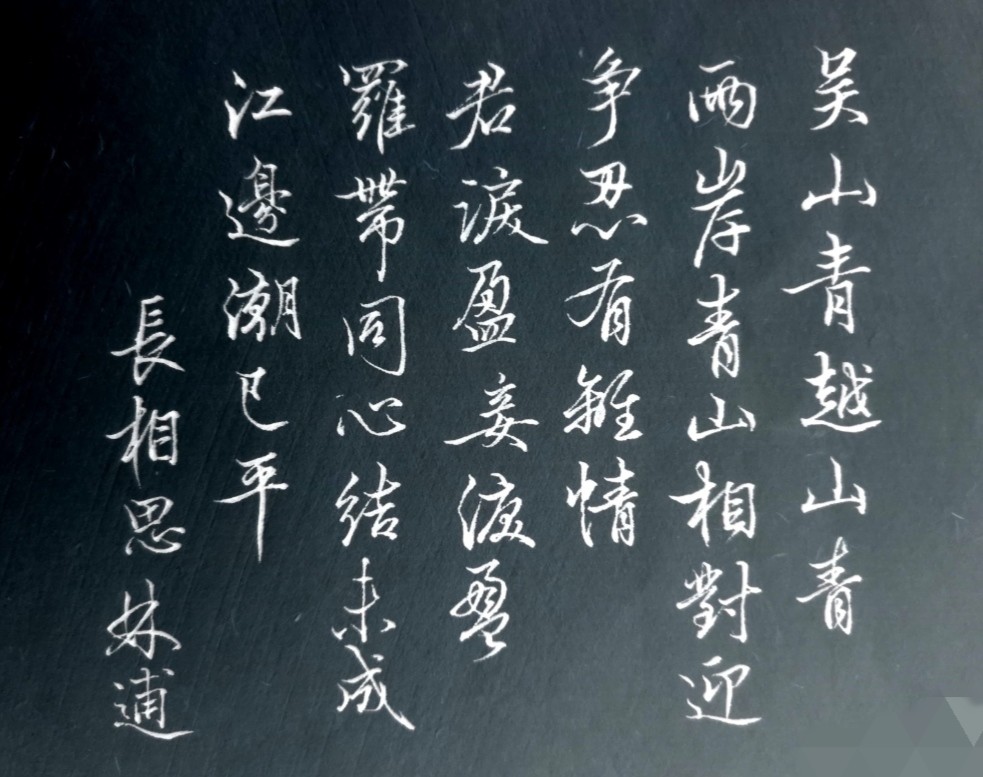 吴山青越山青
兩岸青山相對迎
争忍有離情
君淚盈妾淚盈
羅帶同心結未成
江邊潮已平
長相思林逋